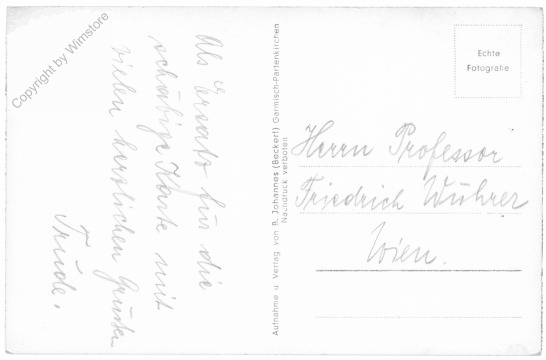 Copyright by Wimstore
Als Ersatz für die
schäbige Karte mit
vielen herzlichen Grüßen
Trude.
Aufnahme u. Verlag von B. Johannes (Beckert) Garmisch-Partenkirchen
Nachdruck verboten
Echte
Fotografie
Herrn Professor
Friedrich Wührer
Wien.